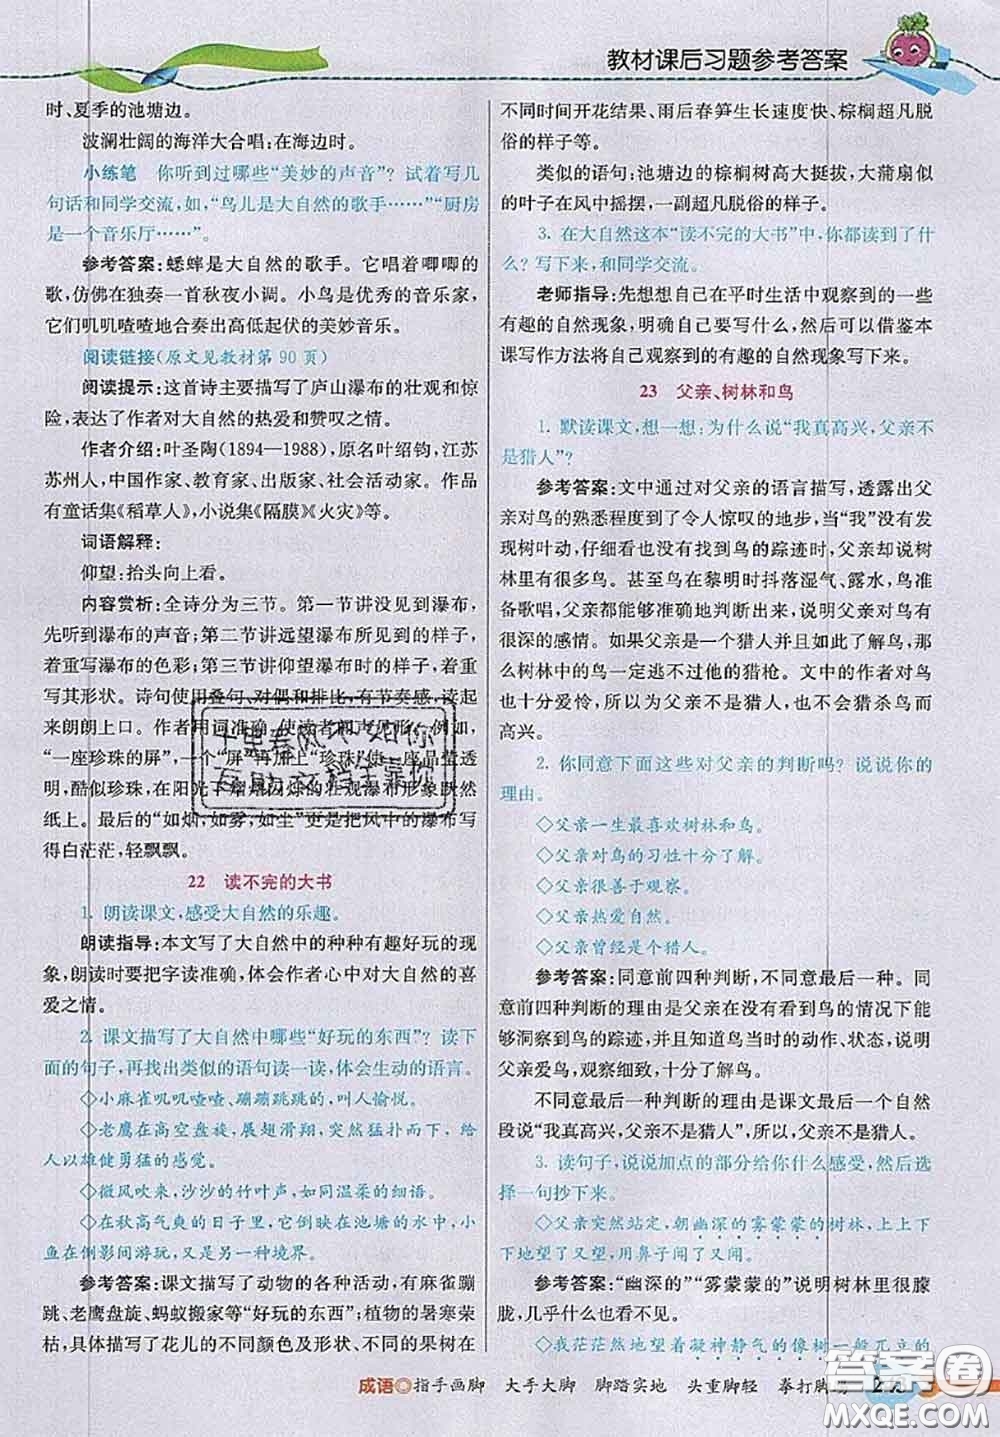 教材课后习题参考答案
时、夏季的池塘边。
波澜壮阔的海洋大合唱:在海边时。
小练笔 你听到过哪些“美妙的声音”？试着写几
句话和同学交流,如,“鸟儿是大自然的歌手……”“厨房
是一个音乐厅……”。
参考答案:蟋蟀是大自然的歌手。它唱着唧唧的
歌,仿佛在独奏一首秋夜小调。小鸟是优秀的音乐家,
它们叽叽喳喳地合奏出高低起伏的美妙音乐。
阅读链接(原文见教材第90页)
阅读提示:这首诗主要描写了庐山瀑布的壮观和惊
险,表达了作者对大自然的热爱和赞叹之情。
作者介绍:叶圣陶(1894—1988),原名叶绍钧,江苏
苏州人,中国作家、教育家、出版家、社会活动家。作品
有童话集《稻草人》,小说集《隔膜》《火灾》等。
词语解释:
仰望:抬头向上看。
内容赏析:全诗分为三节。第一节讲没见到瀑布,
先听到瀑布的声音;第二节讲远望瀑布时的样子,
着重写瀑布的色彩;第三节讲仰望瀑布时的样子,着重
写其形状。诗句使用叠句、对偶和排比,有节奏感,读起
来朗朗上口。作者用词准确,使读者如见其形。例如,
“一座珍珠的屏”,一个“屏”再加上“珍珠”,使作品更精
酷似珍珠,在阳光下熠熠闪烁的瀑布形象跃然
纸上。最后的“如烟,如雾,如尘”更是把风中的瀑布写
得白茫茫,轻飘飘。
22 读不完的大书
1. 朗读课文,感受大自然的乐趣。
朗读指导:本文写了大自然中的种种有趣好玩的现
象,朗读时要把字读准确,体会作者心中对大自然的喜
爱之情。
2. 课文描写了大自然中哪些“好玩的东西”？读下
面的句子,再找出类似的语句读一读,体会生动的语言。
◇小麻雀叽叽喳喳、蹦蹦跳跳的,叫人愉悦。
◇老鹰在高空盘旋,展翅滑翔,突然猛扑下来,给
人以雄健勇猛的感觉。
◇微风吹来,沙沙的竹叶声,如同温柔的细语。
◇在秋高气爽的日子里,它倒映在池塘的水中,小
鱼在倒影间游玩,又是另一种境界。
参考答案:课文描写了动物的各种活动,有麻雀蹦
跳、老鹰盘旋、蚂蚁搬家等“好玩的东西”;植物的暑寒荣
枯,具体描写了花儿的不同颜色及形状、不同的果树在
不同时间开花结果、雨后春笋生长速度快、棕榈超凡脱
俗的样子等。
类似的语句:池塘边的棕榈树高大挺拔,大蒲扇似
的叶子在风中摇摆,一副超凡脱俗的样子。
3. 在大自然这本“读不完的大书”中,你都读到了什
么？写下来,和同学交流。
老师指导:先想想自己在平时生活中观察到的一些
有趣的自然现象,明确自己要写什么,然后可以借鉴本
课写作方法将观察到的有趣的自然现象写下来。
23 父亲、树林和鸟
1. 默读课文,想一想:为什么说“我真高兴,父亲不
是猎人”？
参考答案:文中通过对父亲的语言描写,透露出父
亲对鸟的熟悉程度到了令人惊叹的地步,当“我”没有发
现树叶动,仔细看也没有找到鸟的踪迹时,父亲却说树
林里有很多鸟。甚至鸟在黎明时抖落湿气、露水,鸟准
备歌唱,父亲都能够准确地判断出来,说明父亲对鸟有
很深的感情。如果父亲是一个猎人又如此了解鸟,那
么树林中的鸟一定逃不过他的猎枪。文中的作者对鸟
也十分爱怜,所以为父亲不是猎人、不会猎杀鸟而
高兴。
2. 你同意下面这些对父亲的判断吗？说说你的
理由。
◇父亲一生最喜欢树林和鸟。
◇父亲对鸟的习性十分了解。
◇父亲很善于观察。
◇父亲热爱自然。
◇父亲曾经是个猎人。
参考答案:同意前四种判断,不同意最后一种。同
意前四种判断的理由是父亲在没有看到鸟的情况下能
够洞察到鸟的踪迹,并知道鸟当时的动作、状态,说明父
亲爱鸟,观察细致,十分了解鸟。
不同意最后一种判断的理由是课文最后一个自然
段说“我真高兴,父亲不是猎人”,所以,父亲不是猎人。
3. 读句子,说说加点的部分给你什么感受,然后选
择一句抄下来。
◇父亲突然站定,朝幽深的雾蒙蒙的树林,上上下
下地望了又望,用鼻子闻了又闻。
参考答案:“幽深的”“雾蒙蒙的”说明树林里很朦
胧,几乎什么也看不见。
◇我茫茫然地望着凝神静气的像树一般兀立的
成语◎指手画脚 大手大脚 脚踏实地 头重脚轻
答案圈
MXQE.COM